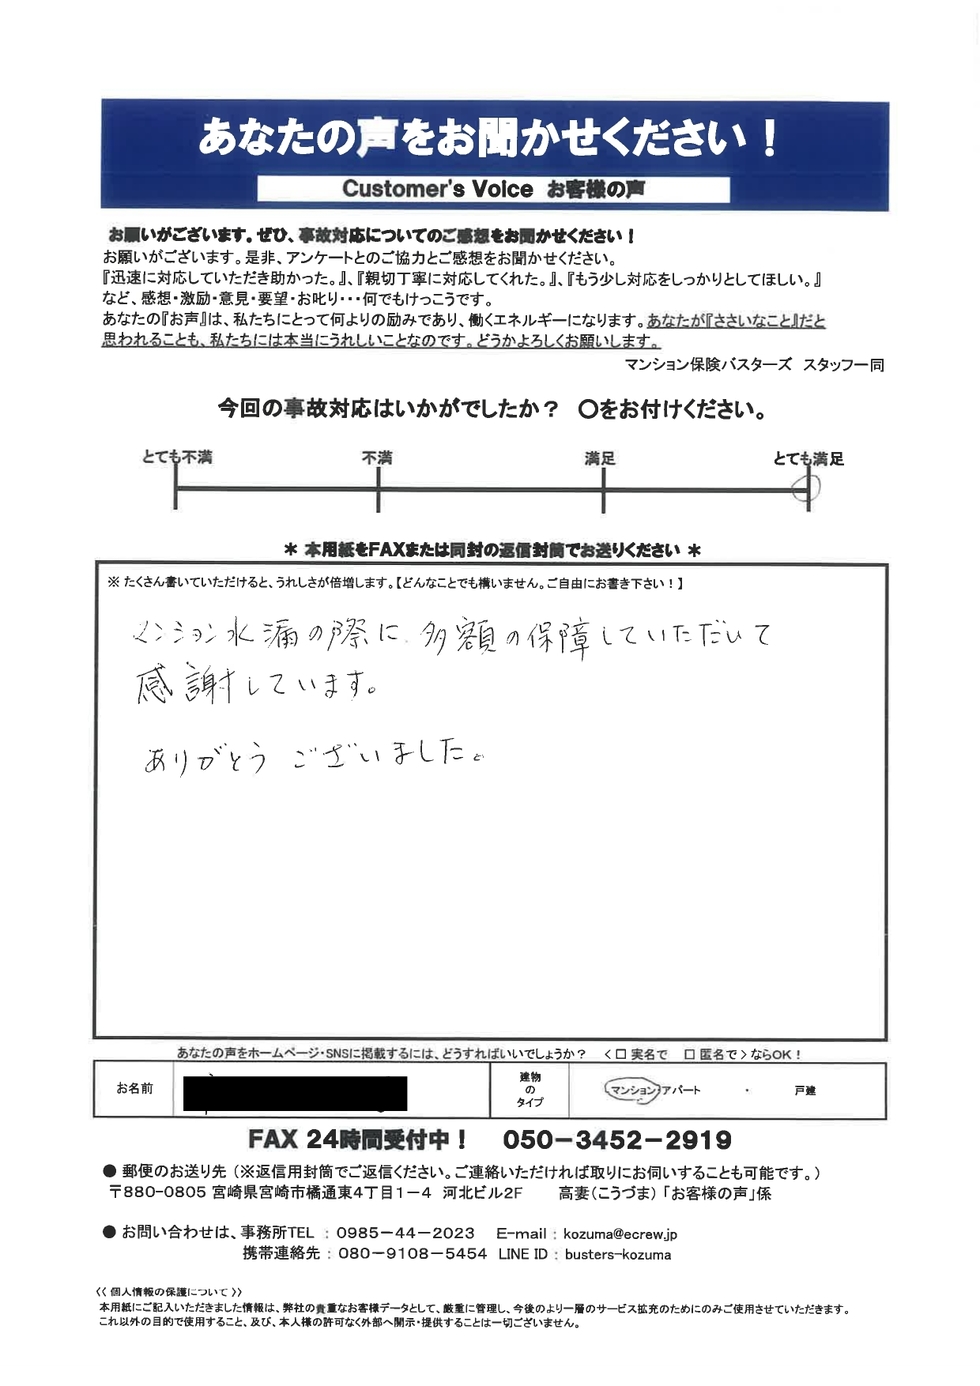 あなたの声をお聞かせください！
Customer's Voice お客様の声
お願いがございます。ぜひ、事故対応についてのご感想をお聞かせください！
お願いがございます。是非、アンケートとのご協力とご感想をお聞かせください。
『迅速に対応していただき助かった。』、『親切丁寧に対応してくれた。』、『もう少し対応をしっかりとしてほしい。』
など、感想・激励・意見・要望・お叱り・・・何でもけっこうです。
あなたの『お声』は、私たちにとって何よりの励みであり、働くエネルギーになります。あなたが『ささいなこと』だと
思われることも、私たちには本当にうれしいことなのです。どうかよろしくお願いします。
マンション保険バスターズ スタッフ一同
今回の事故対応はいかがでしたか？ 〇をお付けください。
とても不満 不満 満足 とても満足
＊ 本用紙をFAXまたは同封の返信封筒でお送りください ＊
※ たくさん書いていただけると、うれしさが倍増します。【どんなことでも構いません。ご自由にお書き下さい！】
マンション水漏の際に 多額の保障していただいて
感謝しています。
ありがとう ございました。
あなたの声をホームページ・SNSに掲載するには、どうすればいいでしょうか？ ＜□ 実名で □ 匿名で＞ならOK！
お名前 建物のタイプ マンション・アパート ・ 戸建
FAX 24時間受付中！ 050－3452－2919
● 郵便のお送り先（※返信用封筒でご返信ください。ご連絡いただければ取りにお伺いすることも可能です。）
〒880-0805 宮崎県宮崎市橘通東4丁目1－4 河北ビル2F 高妻（こうづま）「お客様の声」係
● お問い合わせは、事務所TEL ： 0985－44－2023 E-mail : kozuma@ecrew.jp
携帯連絡先 ： 080－9108－5454 LINE ID : busters-kozuma
《《 個人情報の保護について 》》
本用紙にご記入いただきました情報は、弊社の貴重なお客様データとして、厳重に管理し、今後のより一層のサービス拡充のためにのみご使用させていただきます。
これ以外の目的で使用すること、及び、本人様の許可なく外部へ開示・提供することは一切ございません。